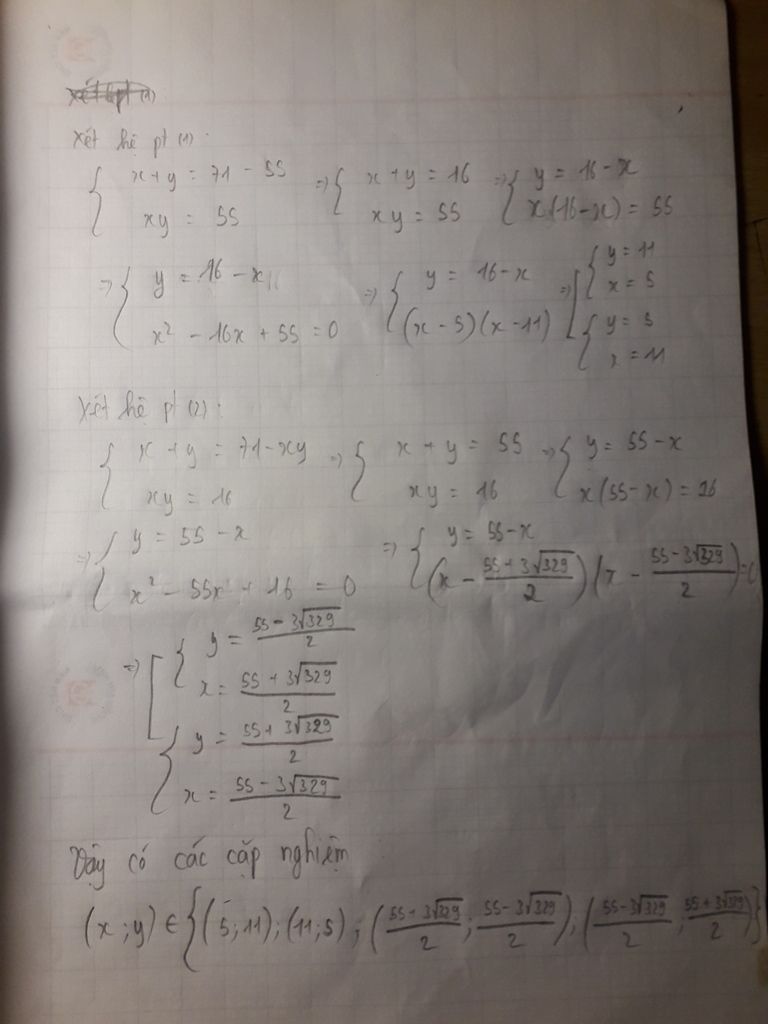 Xét hệ pt (1):
{ x+y = 71 - 55 => { x+y = 16 => { y = 16-x
xy = 55 xy = 55 x(16-x) = 55
=> { y = 16 - x => { y = 16-x => [ { y = 11
x = 5
x² - 16x + 55 = 0 (x-5)(x-11) { y = 5
x = 11
Xét hệ pt (2):
{ x+y = 71-xy => { x+y = 55 => { y = 55-x
xy = 16 xy = 16 x(55-x) = 16
=> { y = 55 - x => { y = 55-x
x² - 55x + 16 = 0 (x - (55+3√329)/2)(x - (55-3√329)/2)=0
=> [ { y = (55-3√329)/2
x = (55+3√329)/2
{ y = (55+3√329)/2
x = (55-3√329)/2
Vậy có các cặp nghiệm
(x;y) ∈ {(5;11);(11;5);((55+3√329)/2;(55-3√329)/2);((55-3√329)/2;(55+3√329)/2)}